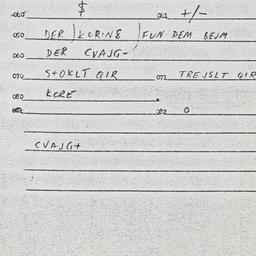 $ 042 +/-
050 DER KORING FUN DEM BEJM
060 DER CVAJG-
070 STOKLT QIR 071 TREJSLT QIR
080 KORE
082 0
CVAJG+